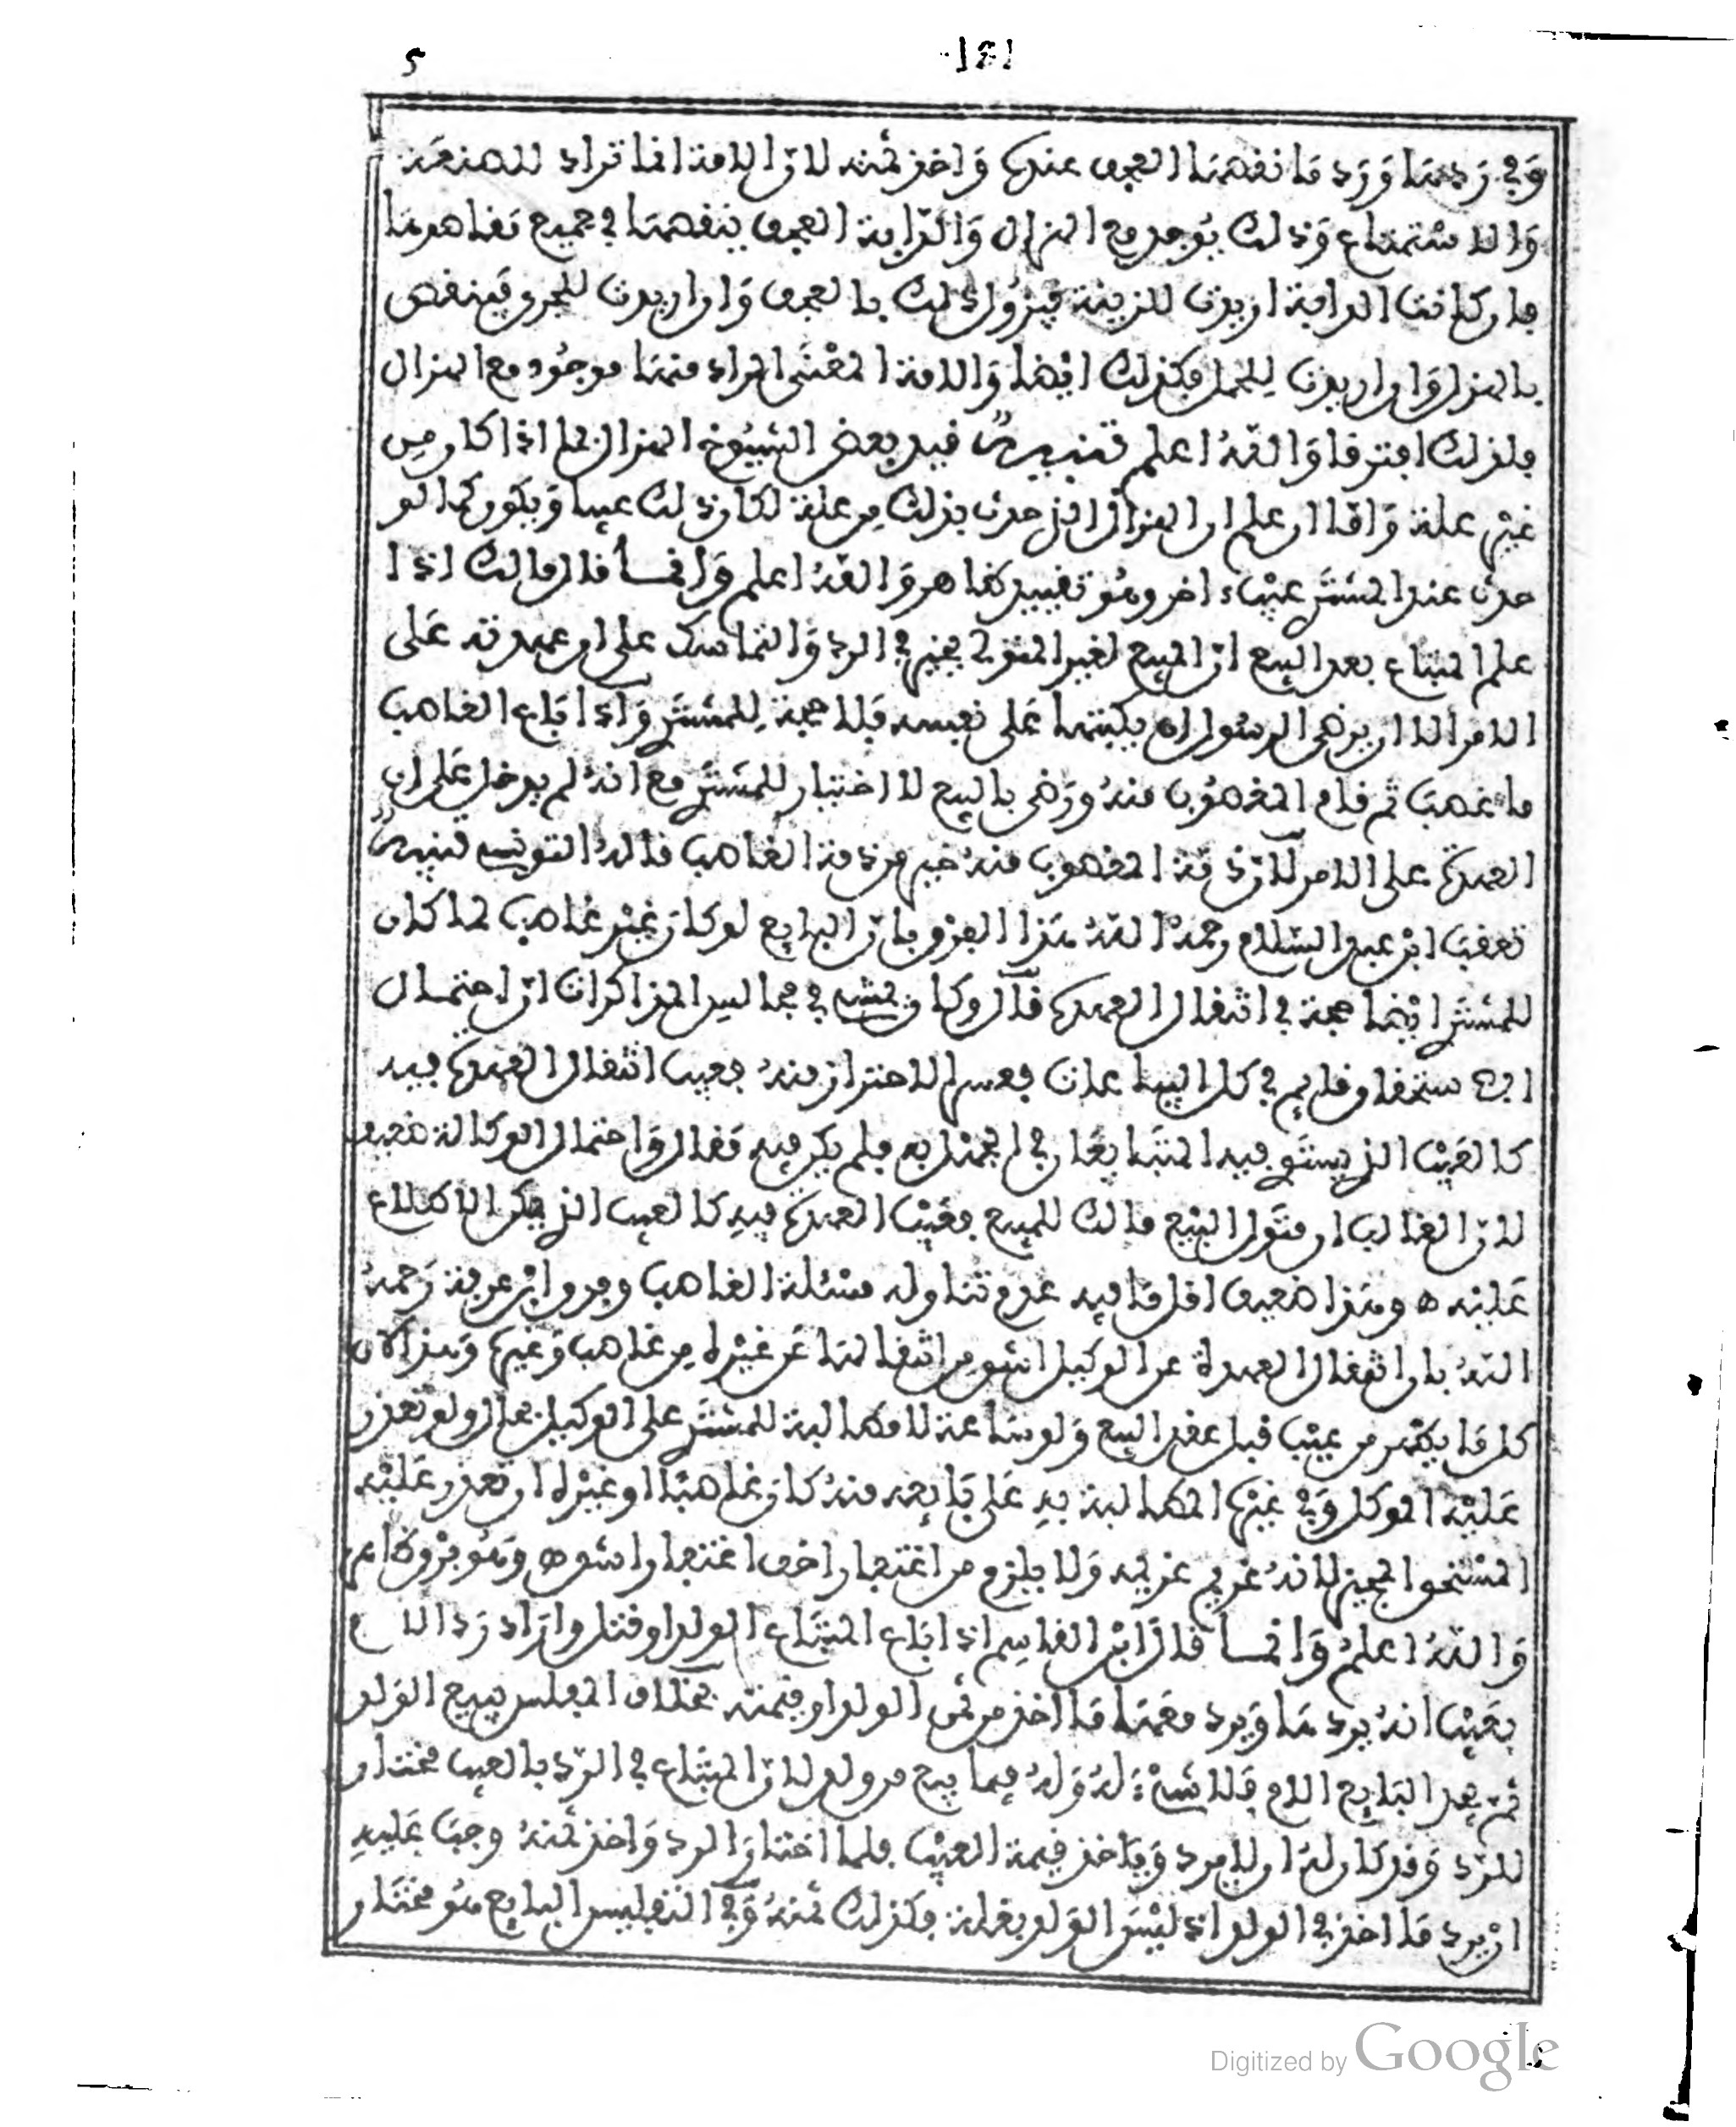 5 181
وفي ردها ورد ما نقصها العجف عنده واخذ ثمنه لان الامة انما تراد للمنفعة
والاستمتاع وذلك يوجد مع الهزال والدابة العجف ينقصها في جميع مقاصدها
فان كانت الدابة اريدت للزينة فيزول ذلك بالعجف وان اريدت للجري فينقص
بالهزال وان اريدت للحمل فكذلك ايضا والامة المعنى المراد منها موجود مع الهزال
فلذلك افترقا والله اعلم تنبيه قيد بعض الشيوخ الهزال بما اذا كان من
غير علة واما ان علم ان الهزال انما حدث بذلك من علة لكان ذلك عيبا ويكون كما لو
حدث عند المشتري عيب اخر وهو تقييد ظاهر والله اعلم وانما قال مالك اذا
علم المبتاع بعد البيع ان المبيع لغير المتولي يخير في الرد والتماسك على ان عهدته على
الامر الا ان يرضى الرسول ان يكتبها على نفسه فلا حجة للمشتري واذا باع الغاصب
ما غصب ثم قام المغصوب منه ورضي بالبيع لا اختيار للمشتري مع انه لم يدخل على ان
العهدة على الامر لان ذمة المغصوب منه خير من ذمة الغاصب قاله التونسي تنبيه
تعقب ابن عبد السلام رحمه الله هذا الفرق بان البايع لو كان غير غاصب لما كان
للمشتري ايضا حجة في انتقال العهدة قال وكان يمشي في مجالس المذاكرات ان احتمال
الاستحقاق قايم في كل البياعات فعسر الاحتراز منه فعيب انتقال العهدة فيه
كالعيب الذي يستوي فيه المتبايعان في الجهل به فلم يكن فيه مقال واحتمال الوكالة ضعيف
لان الغالب ان متولي البيع مالك للمبيع فعيب العهدة فيه كالعيب الذي يمكن الاطلاع
عليه ه وهذا ضعيف اقل ما فيه عدم تناوله مسئلة الغاصب وفرق ابن عرفة رحمه
الله بان انتقال العهدة عن الوكيل اشد من انتقالها عن غيره من غاصب وغيره وهذا لان
كل ما يظهر من عيب قبل عقد البيع ولو ساعة لا مطالبة للمشتري على الوكيل بحال ولو تعذر
عليه الموكل وفي غيره المطالبة به على بايعه منه كان غاصبا او غيره ان تعذر عليه
المستحق المجيز لانه غريم غريمه ولا يلزم من اغتفار اخف اغتفار اشد ه وهو فرق ظاهر
والله اعلم وانما قال ابن القاسم اذا باع المبتاع الولد او قتل واراد رد الام
بعيب انه يرد ها ويرد معها ما اخذ من ثمن الولد او قيمته بخلاف المفلس يبيع الولد
ثم يجد البايع الام فلا شيء له وله فيما بيع من ولد لان المبتاع في الرد بالعيب مختار
للرد وقد كان له ان لا يرد وياخذ قيمة العيب فلما اختار الرد واخذ ثمنه وجب عليه
ان يرد ما اخذ في الولد اذ ليس الولد بغلة فكذلك ثمنه وفي التفليس البايع هو مختار
Digitized by Google